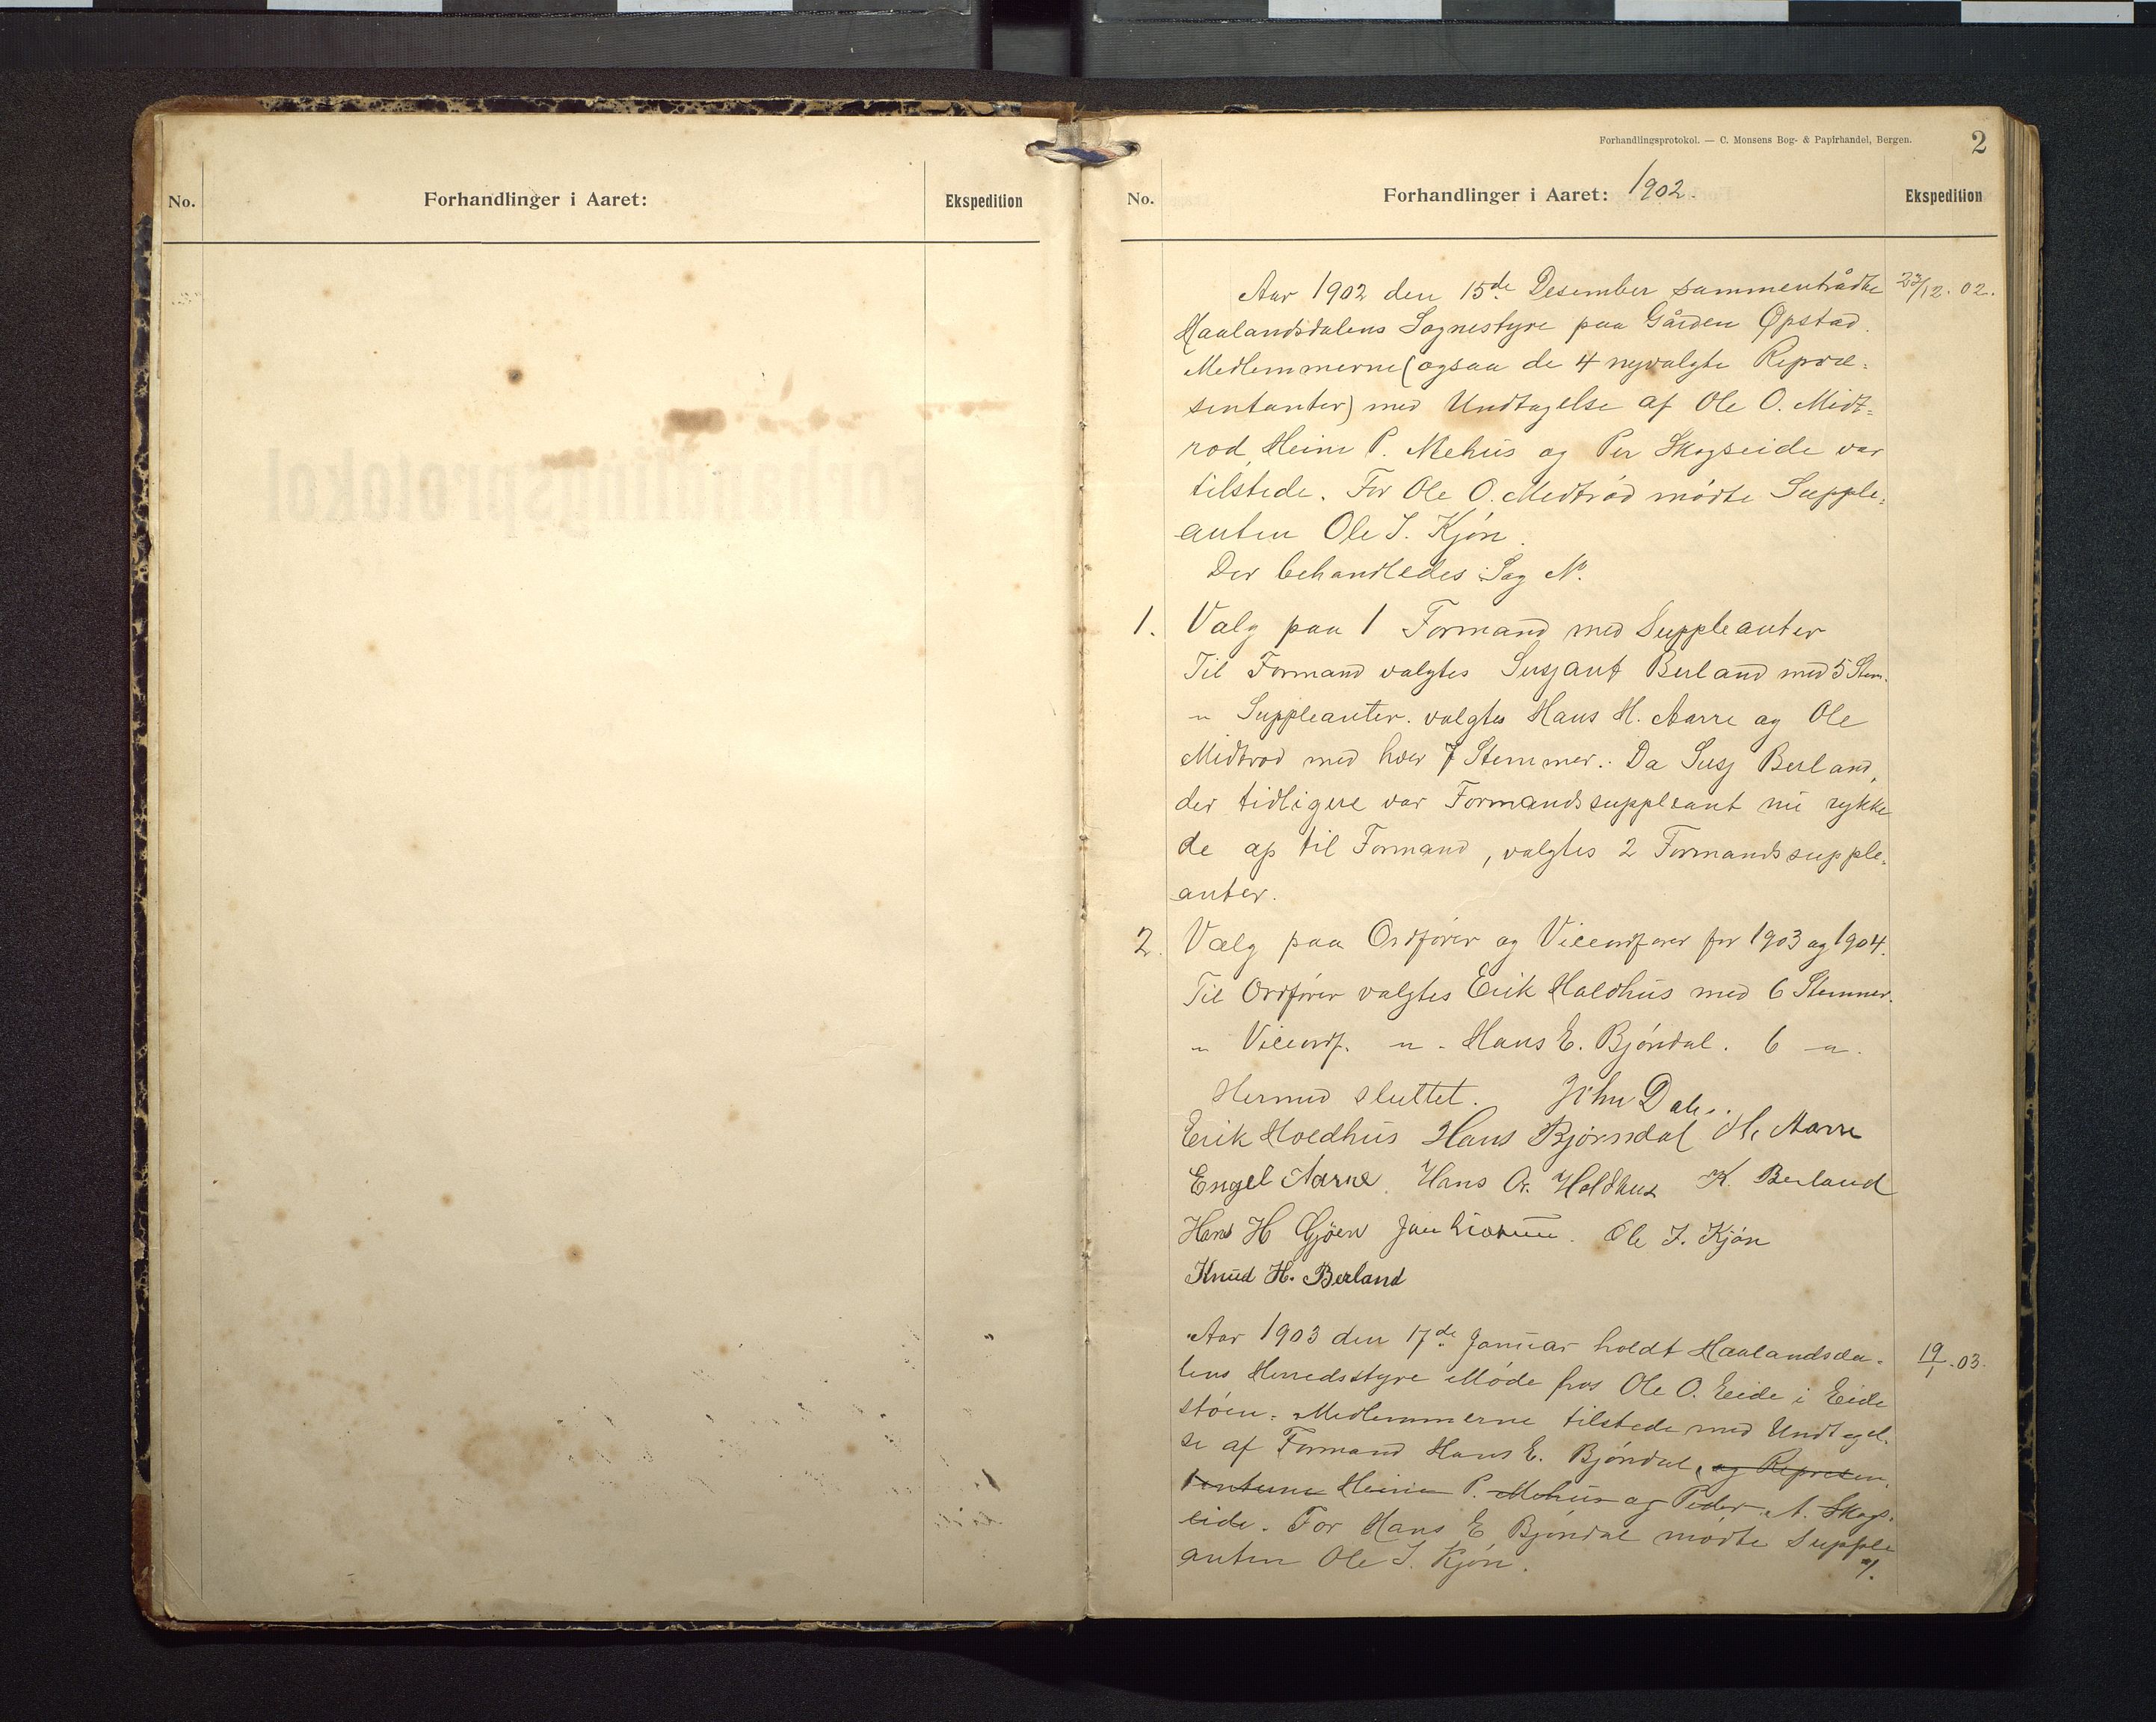 No.
Forhandlinger i Aaret:
Ekspedition
Forhandlingsprotokol. — C. Monsens Bog- & Papirhandel, Bergen.
2
No.
Forhandlinger i Aaret: 1902.
Ekspedition
Aar 1902 den 15de Desember sammentrådte 23/12. 02.
Haalandsdalens Sognestyre paa Gården Opstad.
Medlemmerne (ogsaa de 4 nyvalgte Repræ-
sentanter) med Undtagelse af Ole O. Midt-
rød, Heine P. Mehus og Per Skogseide var
tilstede. For Ole O. Midtrød mødte Supple-
anten Ole J. Kjön.
Der behandledes Sag No.
1. Valg paa 1 Formand med Suppleanter
Til Formand valgtes Sersjant Berland med 5 Stem.
" Suppleanter valgtes Hans H. Aarre og Ole
Midtrød med hver 7 Stemmer. Da Sersj Berland,
der tidligere var Formandssuppleant nu rykke
de op til Formand, valgtes 2 Formandssupple-
anter.
2. Valg paa Ordfører og Viceordfører for 1903 og 1904.
Til Ordfører valgtes Erik Holdhus med 6 Stemmer.
" Viceordf. " Hans E. Bjöndal. 6 "
Hermed sluttet. John Dale.
Erik Holdhus Hans Bjørndal H. Aarre
Engel Aarre. Hans Or. Holdhus K. Berland
Hans H Gjöen Jan Ole J. Kjön
Knud H. Berland
Aar 1903 den 17de Januar holdt Haalandsda- 19/1. 03.
lens Herredsstyre Møde hos Ole O. Eide i Eide
støen. Medlemmerne tilstede med Undtagel-
se af Formand Hans E. Bjöndal, og Represen
tanterne Heine P. Mehus og Peder A. Skogs-
eide. For Hans E Bjöndal mødte Supple
anten Ole J. Kjön.